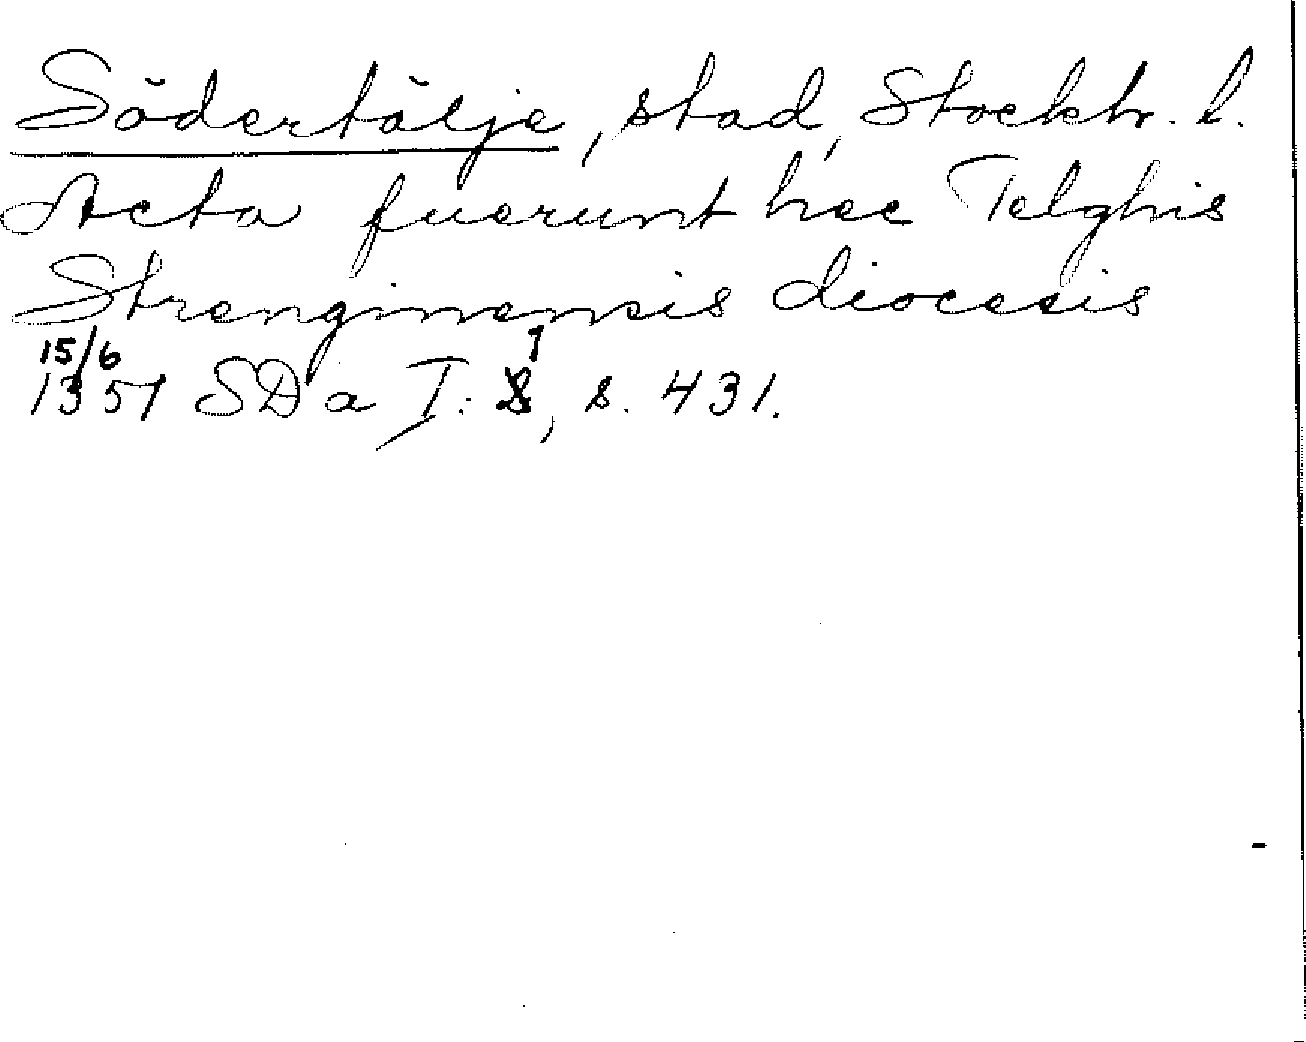 Södertälje, stad, Stockh. l.
Acta fuerunt hec Telghis
Strenginensis diocesis
15/6
1351 SD a I: 1, s. 431.